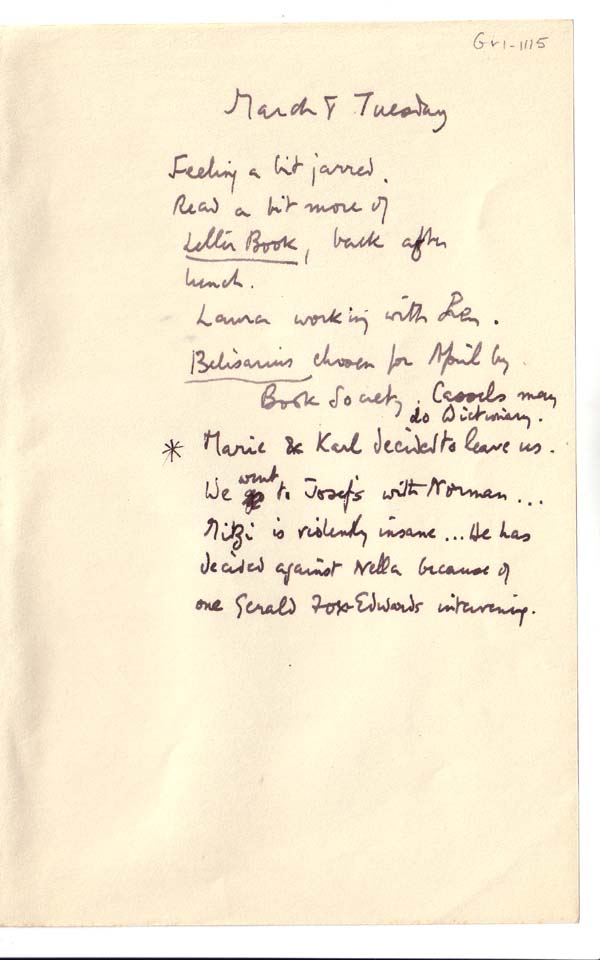 GV1-1115
March 8 Tuesday
Feeling a bit jarred.
Read a bit more of
Letter Book, back after
lunch.
Laura working with
Belisarius chosen for April by
Book Society. Cassels may
do Dictionary.
* Marie & Karl decided to leave us.
We went to Josef's with Norman...
Mitzi is violently insane... He has
decided against Nella because of
one Gerald Fox-Edwards intervening.